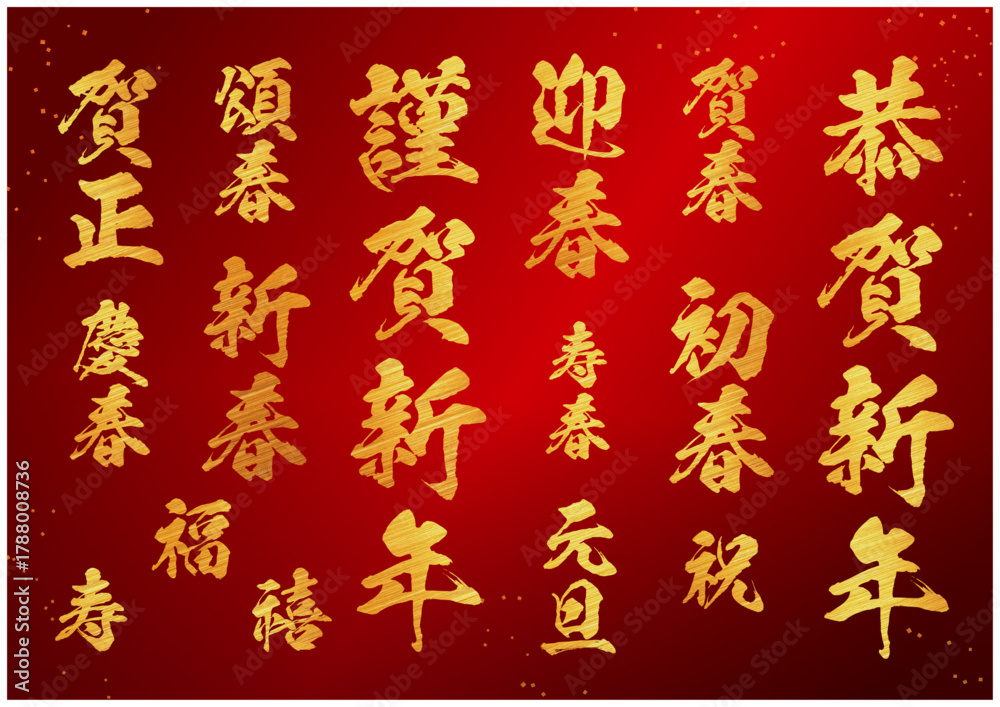 恭賀新年
賀春
初春
祝
迎春
寿春
元旦
謹賀新年
頌春
新春
福
禧
賀正
慶春
寿
Adobe Stock | #1788008736
Adobe Stock